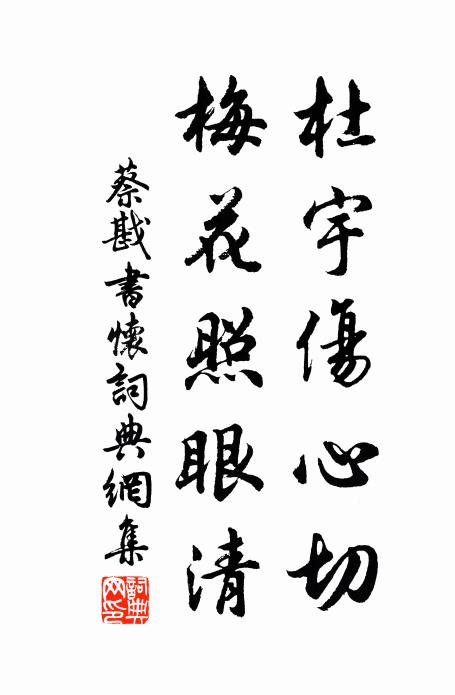 杜宇傷心切
梅花照眼清
蔡戡書懷詞典網集
詞典網印